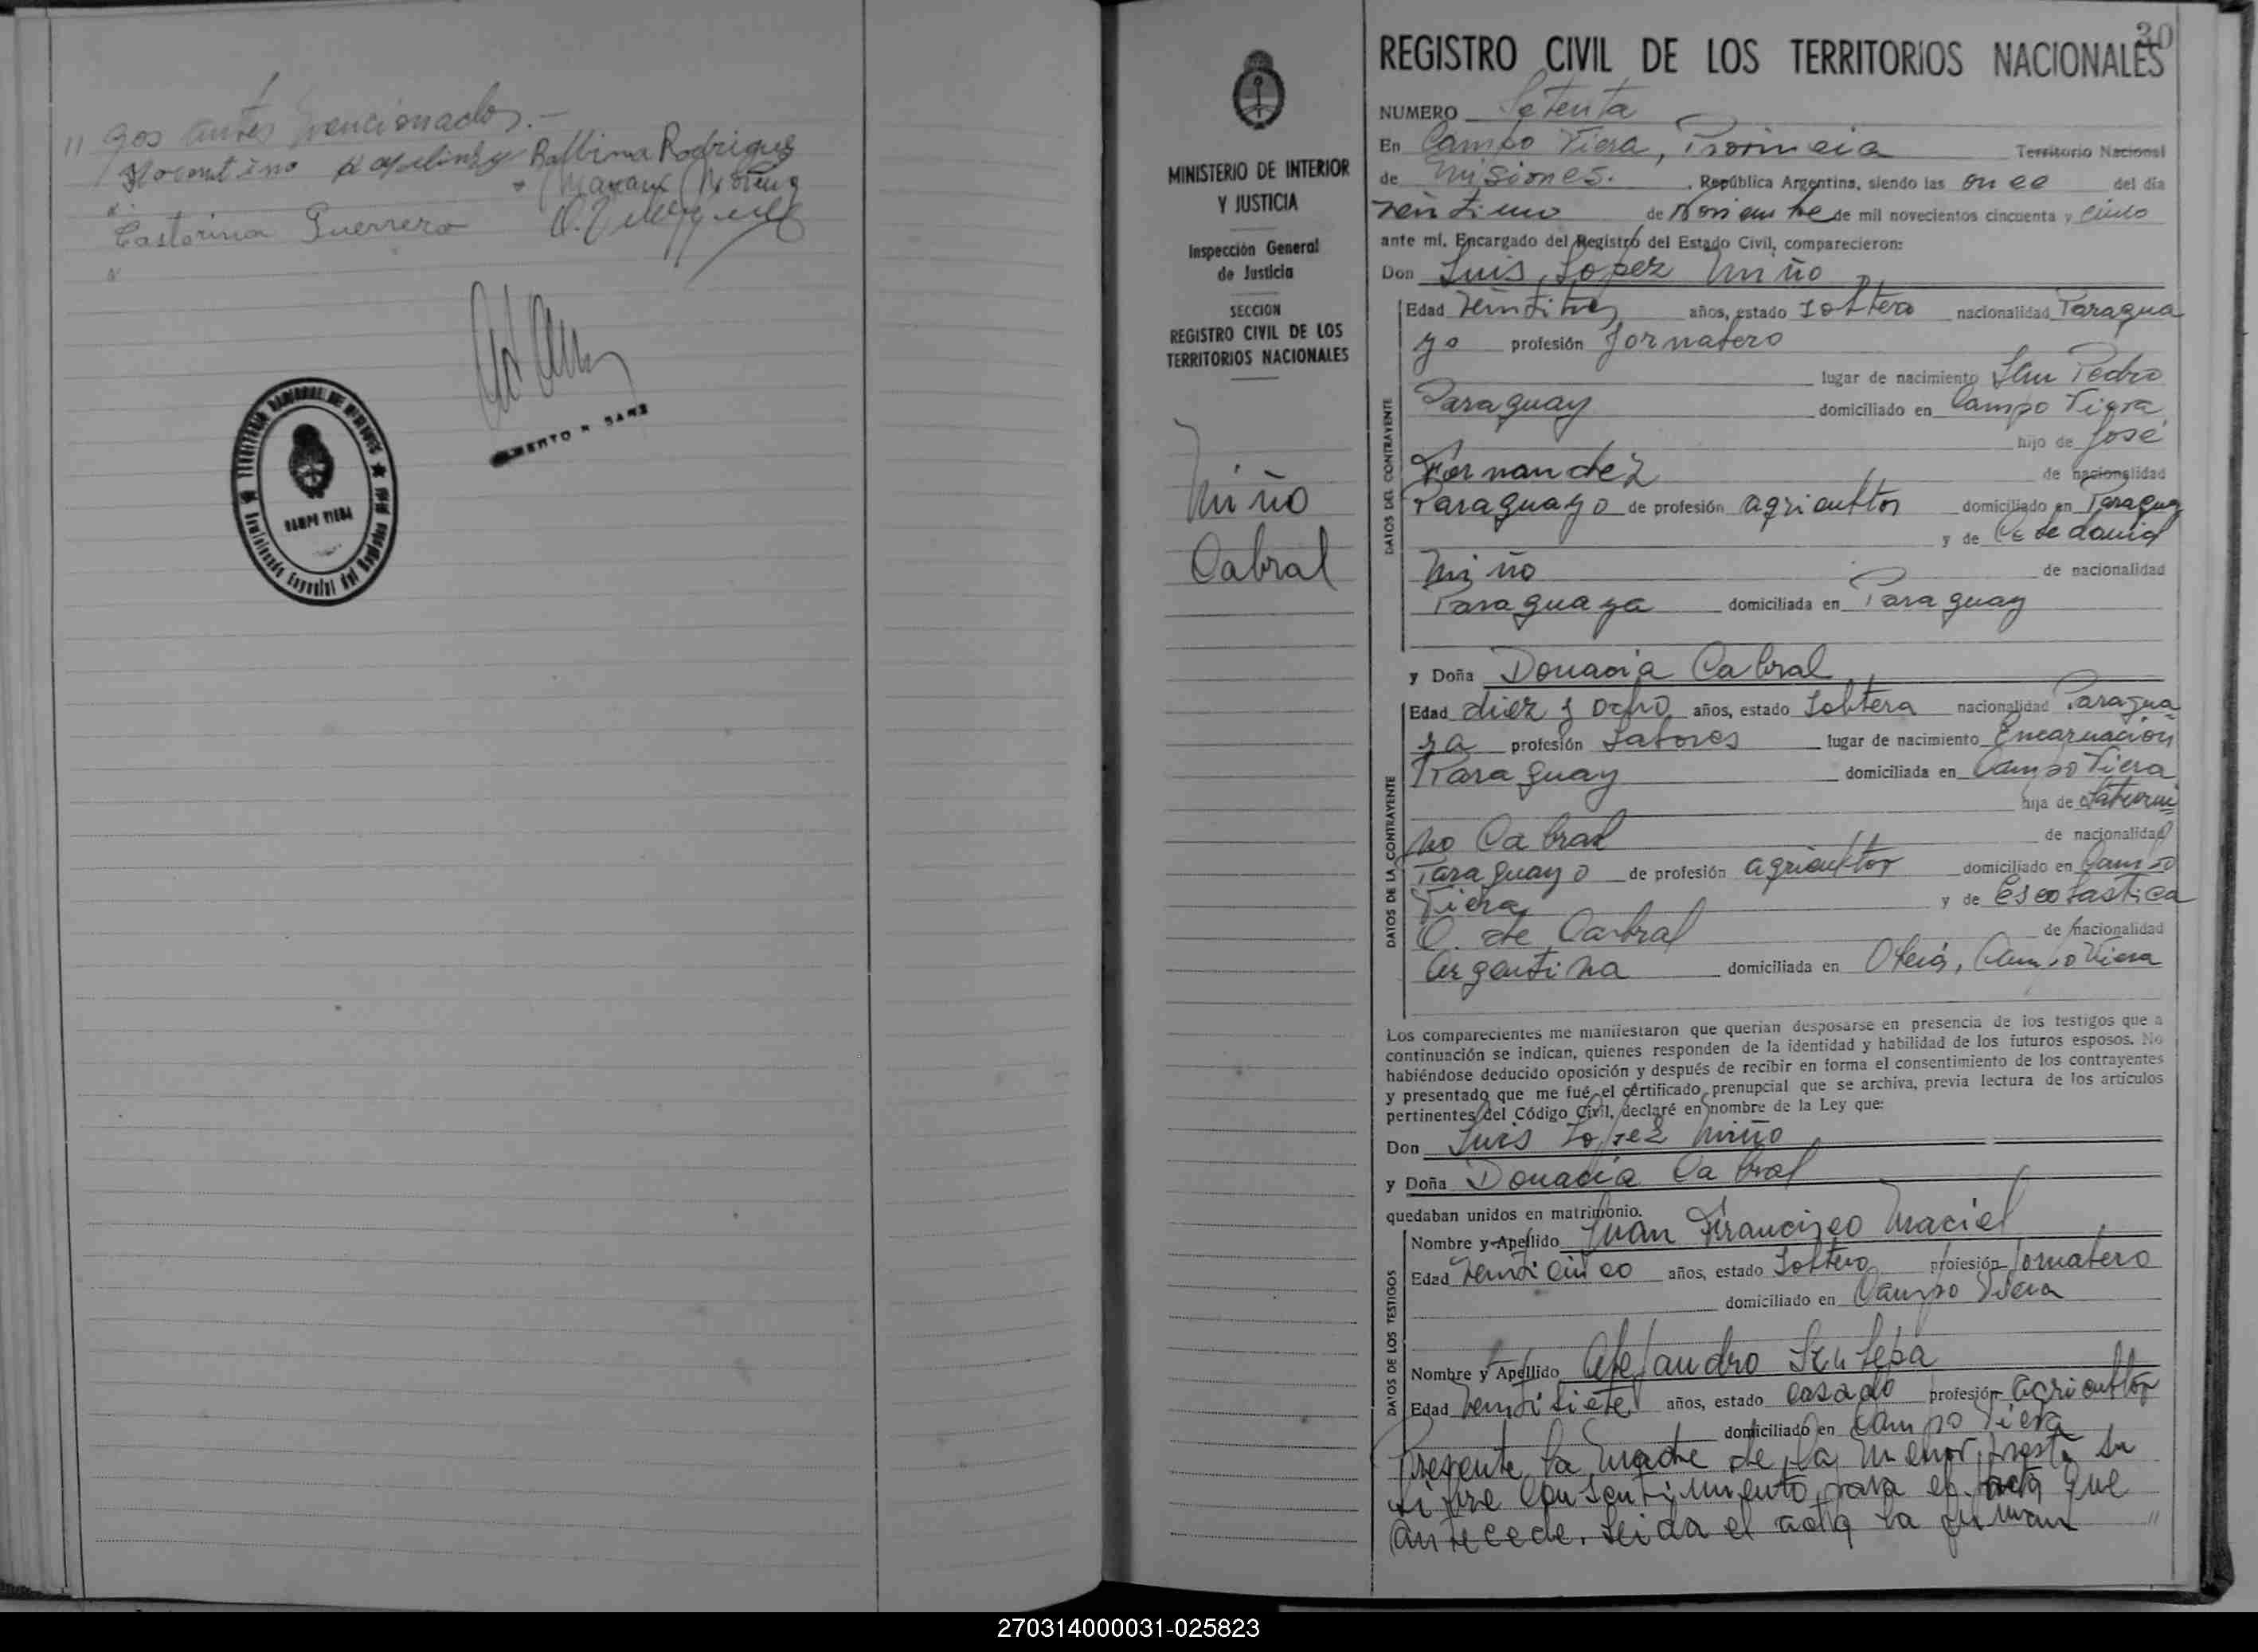 // gos antes mencionados.-
Balbina Rodriguez
Castorina Guerrero
CAMPO VIERA
30
REGISTRO CIVIL DE LOS TERRITORIOS NACIONALES
MINISTERIO DE INTERIOR
Y JUSTICIA
Inspección General
de Justicia
SECCION
REGISTRO CIVIL DE LOS
TERRITORIOS NACIONALES
Niño
Cabral
NUMERO Setenta
En Campo Viera, Provincia Territorio Nacional
de Misiones. , República Argentina, siendo las once del día
de Noviembre de mil novecientos cincuenta y cinco
ante mí, Encargado del Registro del Estado Civil, comparecieron:
Don Luis Lopez Niño
Edad veintitres años, estado soltero nacionalidad Paragua
yo profesión Jornalero
lugar de nacimiento San Pedro
Paraguay domiciliado en Campo Viera
hijo de José
DATOS DEL CONTRAYENTE
Fernandez de nacionalidad
Paraguayo de profesión agricultor domiciliado en Paraguay
y de
Niño de nacionalidad
Paraguaya domiciliada en Paraguay
y Doña Donacia Cabral
Edad diez y ocho años, estado soltera nacionalidad Paragua-
ya profesión Labores lugar de nacimiento Encarnación
Paraguay domiciliada en Campo Viera
hija de Saturni
DATOS DE LA CONTRAYENTE
no Cabral de nacionalidad
Paraguayo de profesión agricultor domiciliado en Campo
Viera y de Escolastica
O. de Cabral de nacionalidad
argentina domiciliada en Oberá, Campo Viera
Los comparecientes me manifestaron que querían desposarse en presencia de los testigos que a
continuación se indican, quienes responden de la identidad y habilidad de los futuros esposos. No
habiéndose deducido oposición y después de recibir en forma el consentimiento de los contrayentes
y presentado que me fué el certificado prenupcial que se archiva, previa lectura de los artículos
pertinentes del Código Civil, declaré en nombre de la Ley que:
Don Luis Lopez Niño
y Doña Donacia Cabral
quedaban unidos en matrimonio.
Nombre y Apellido Juan Francisco Maciel
Edad veinticinco años, estado Soltero profesión Jornalero
domiciliado en Campo Viera
DATOS DE LOS TESTIGOS
Nombre y Apellido Alejandro
Edad veintisiete años, estado casado profesión agricultor
domiciliado en Campo Viera
Presente la madre de la menor, presta su
libre consentimiento para el acta que
antecede. Leida el acta la firman //
270314000031-025823